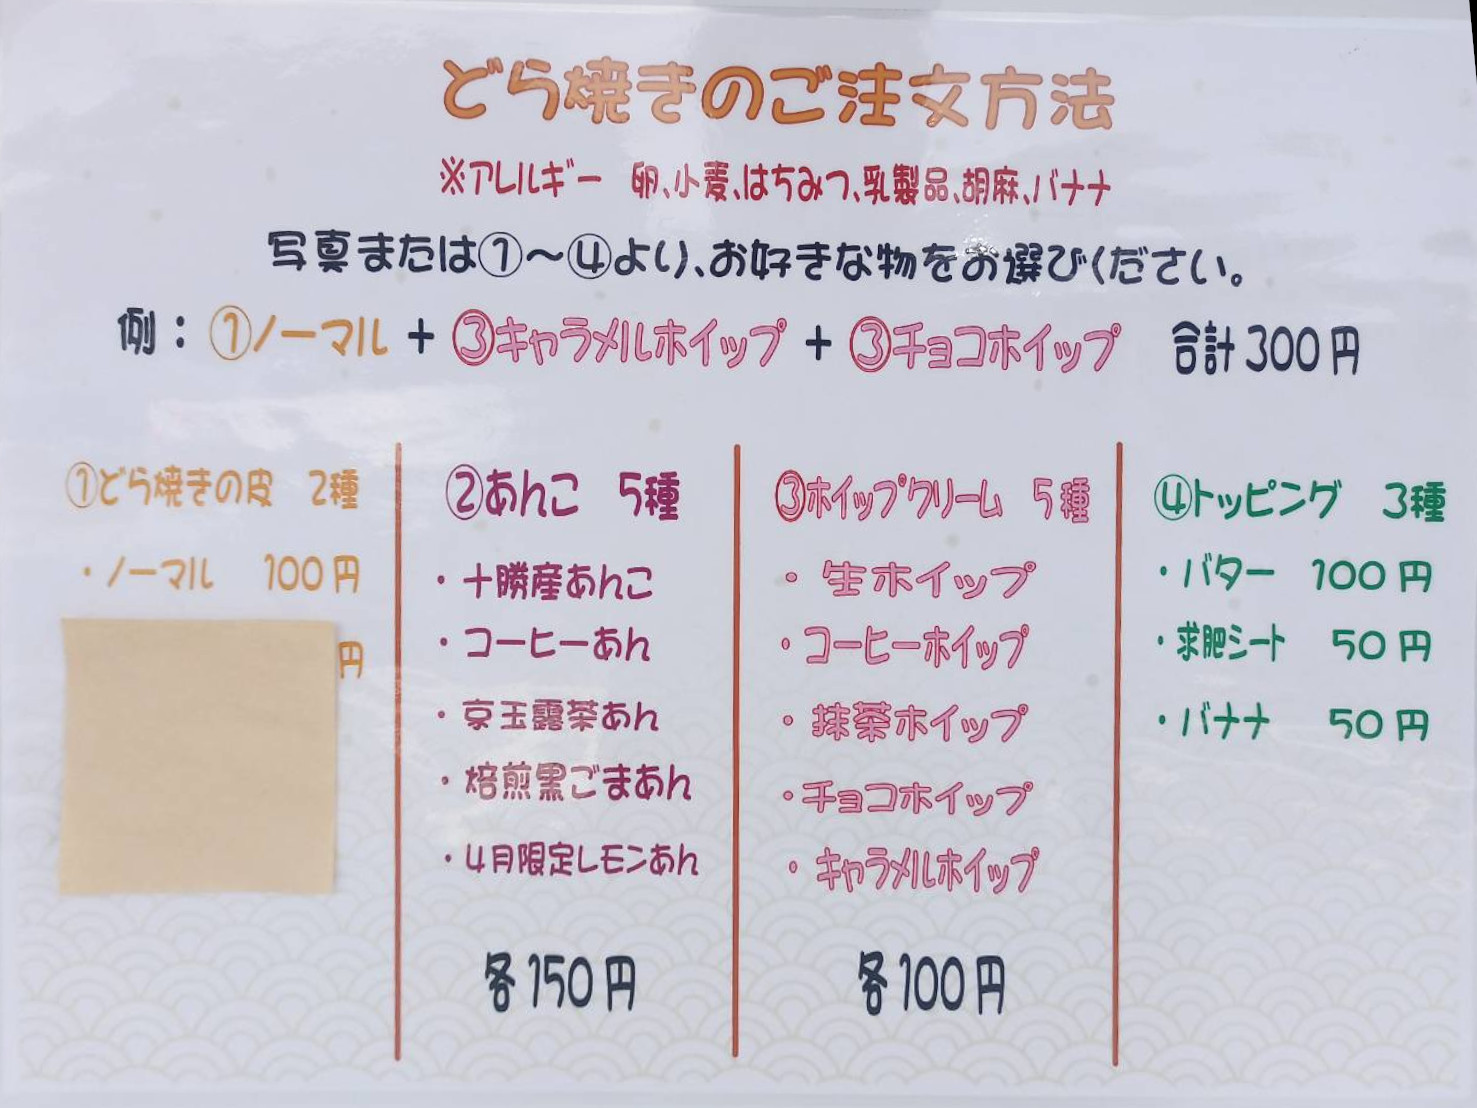 どら焼きのご注文方法
※アレルギー 卵、小麦、はちみつ、乳製品、胡麻、バナナ
写真または①～④より、お好きな物をお選びください。
例：①ノーマル + ③キャラメルホイップ + ③チョコホイップ 合計300円
①どら焼きの皮 2種
・ノーマル 100円
円
②あんこ 5種
・十勝産あんこ
・コーヒーあん
・京玉露茶あん
・焙煎黒ごまあん
・4月限定レモンあん
各150円
③ホイップクリーム 5種
・生ホイップ
・コーヒーホイップ
・抹茶ホイップ
・チョコホイップ
・キャラメルホイップ
各100円
④トッピング 3種
・バター 100円
・求肥シート 50円
・バナナ 50円